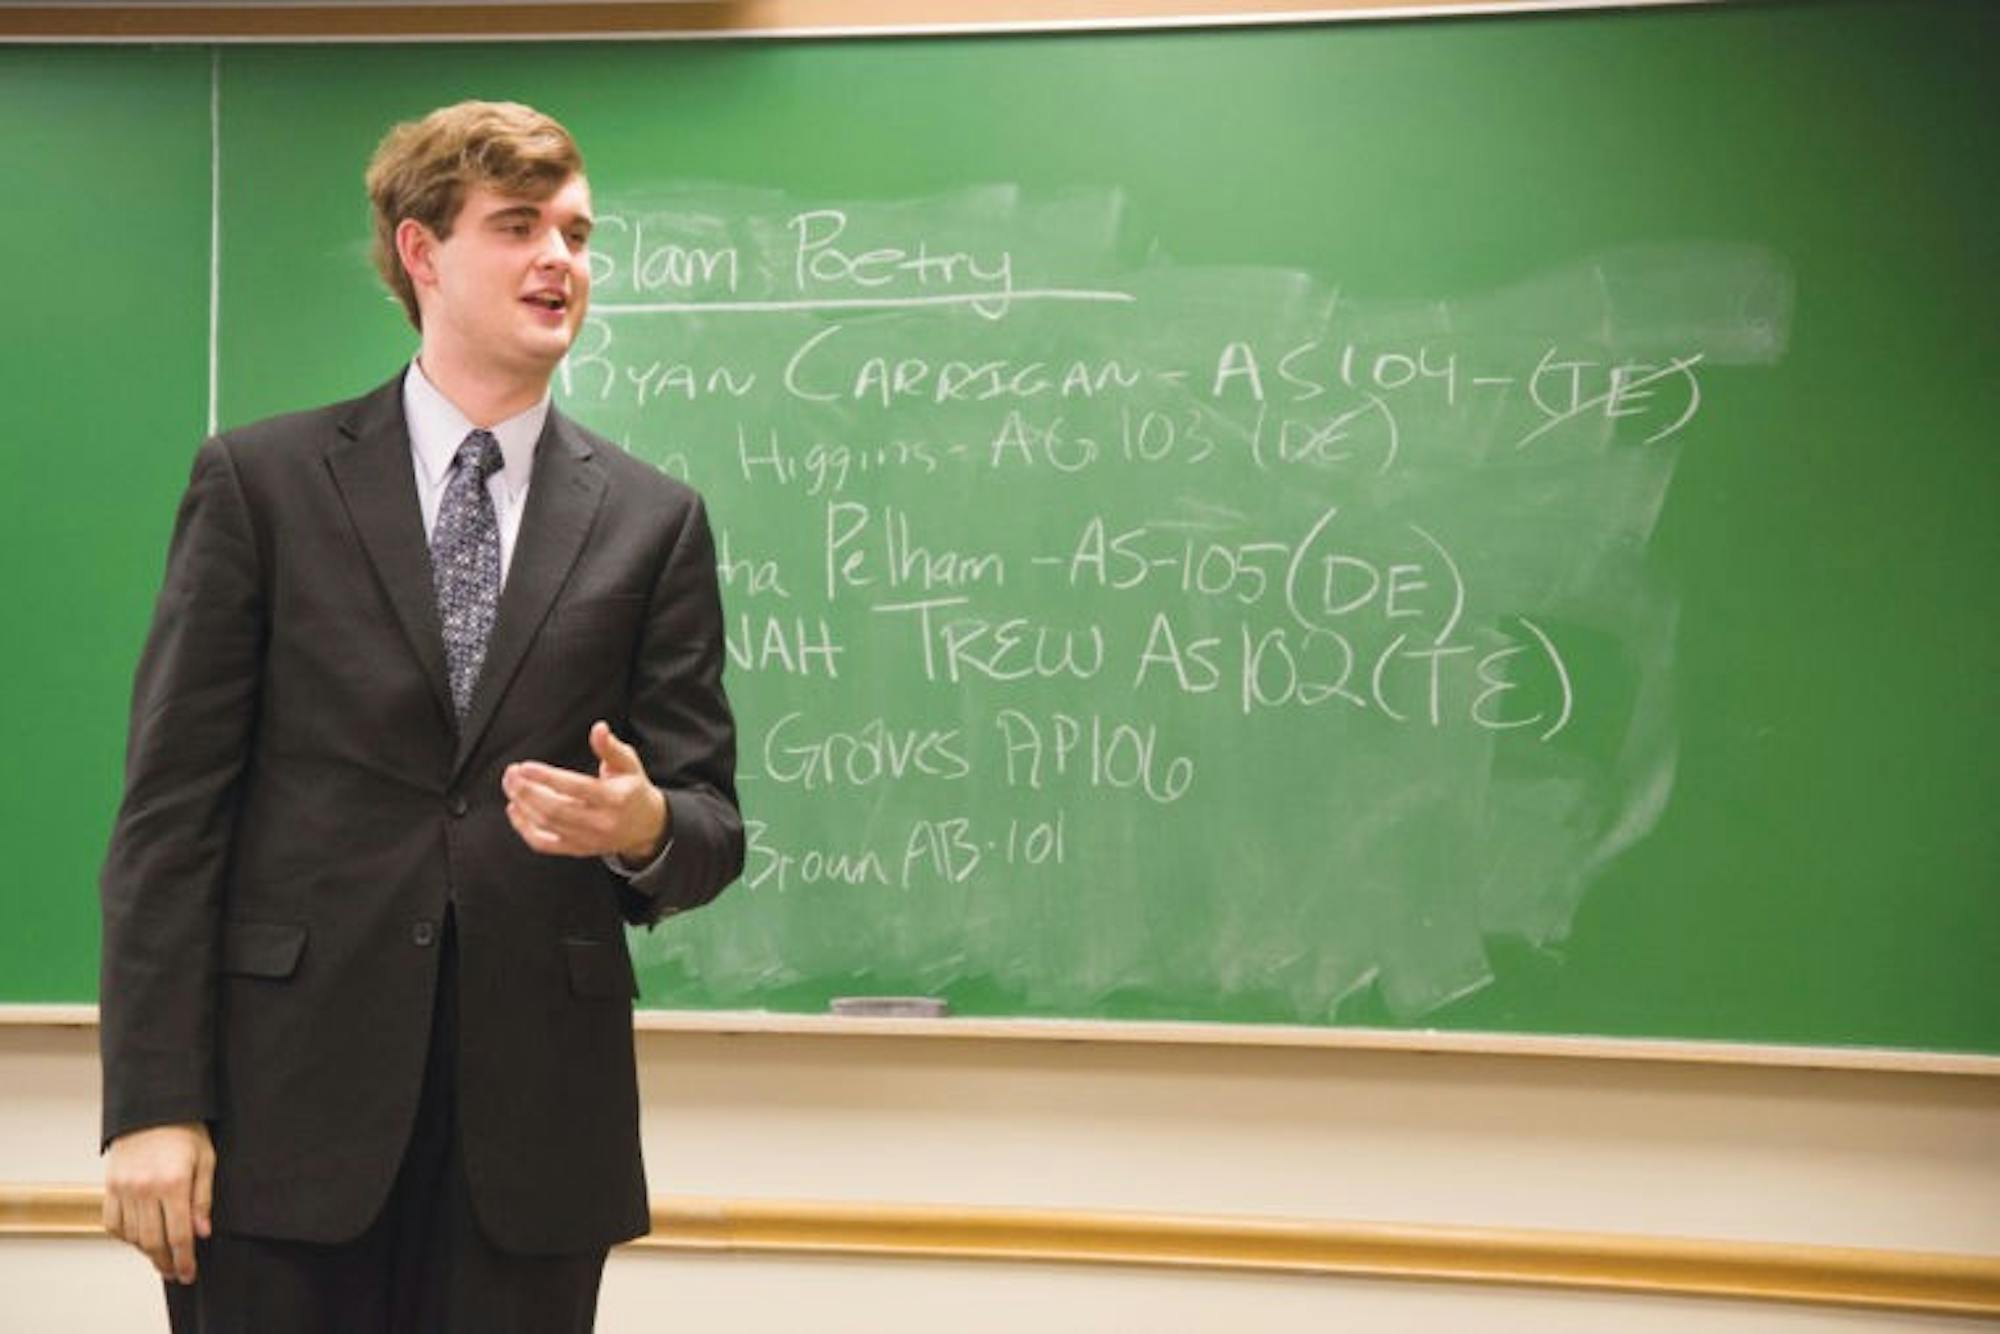 Slam Poetry
RYAN CARRIGAN - AS104 - (TE)
Higgins - AG 103 (DE)
Pelham - AS-105 (DE)
TREW AS102 (TE)
Graves AP106
Brown AB-101